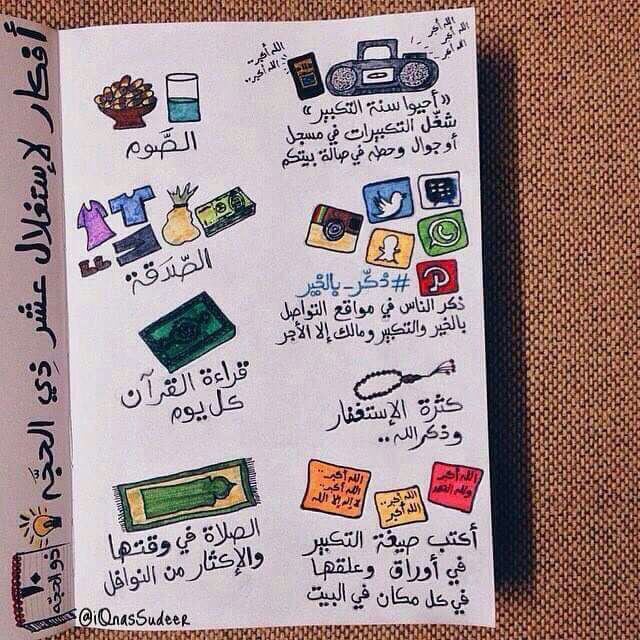 أفكار لإستغلال عشر ذي الحجّه
١٠
ذو الحجّه
الله أكبر
الله أكبر
الله أكبر
الله أكبر..
الله أكبر..
«أحيوا سنة التكبير»
شغّل التكبيرات في مسجل
أو جوال وحطه في صالة بيتكم
الصَّوم
#ذكّر_بالخير
ذكر الناس في مواقع التواصل
بالخير والتكبير ومالك إلا الأجر
الصَّدَقة
كثرة الإستغفار
وذكر الله..
قراءة القرآن
كل يوم
الله أكبر..
الله أكبر..
لا إله إلا الله
الله أكبر..
الله أكبر
الله أكبر
ولله الحمد
أكتب صيغة التكبير
في أوراق وعلقها
في كل مكان في البيت
الصلاة في وقتها
والإكثار من النوافل
@iQnasSudeer